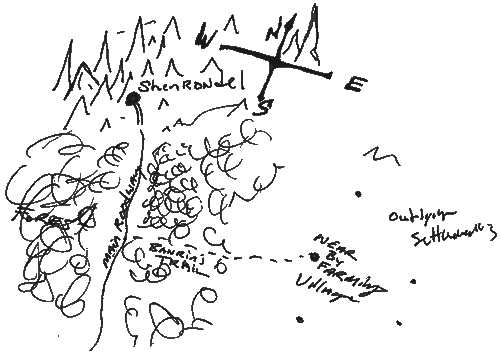 N
W
E
S
Shenrondel
Forest
Main Roadway
Banrin's
Trail
Near
By
Farming
Village
Outlying
Settlements